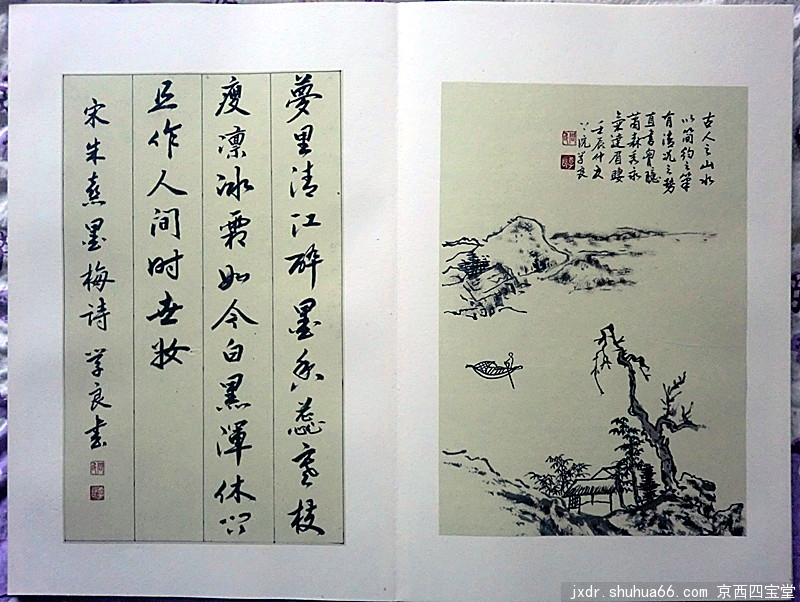 夢里清江醉墨香蕊寒枝
瘦凛冰霜如今白黑渾休问
且作人间时世妆
宋朱熹墨梅诗 学良书
古人之山水
以简约之筆
有清况之势
直書胸臆
萧森秀永
達眉睫
壬辰仲夏
学良
jxdr.shuhua66.com 京西四宝堂